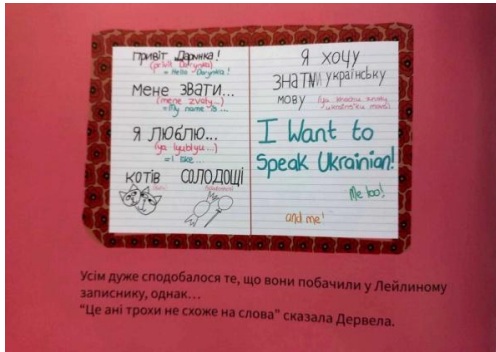 Привіт Даринка!
(privit Darynka)
= Hello Darynka!
Мене звати...
(mene zvaty...)
=My name is...
Я люблю...
(ya lyublyu...)
=I like...
котів
солодощі
Я хочу
знати українську
мову
I Want to
Speak Ukrainian!
Me too!
and me!
Усім дуже сподобалося те, що вони побачили у Лейлиному
записнику, однак...
"Це ані трохи не схоже на слова" сказала Дервела.